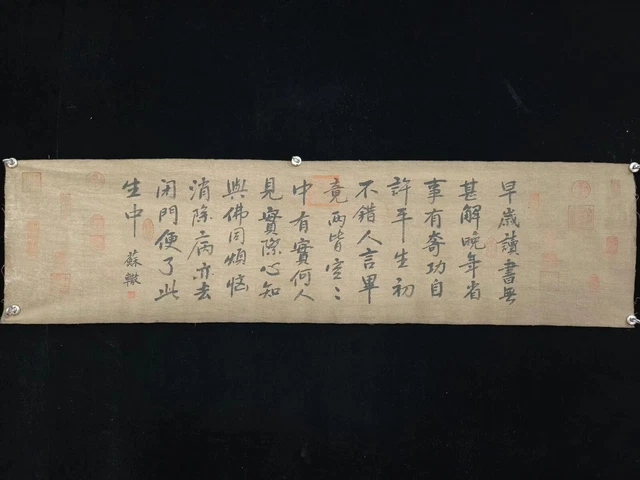 早歲讀書無
甚解晩年省
事有奪功自
許平生初
不錯人言畢
竟兩皆空〻
中有實何人
見實際心知
與佛同煩惱
消除病亦去
閉門便了此
生中
蘇轍